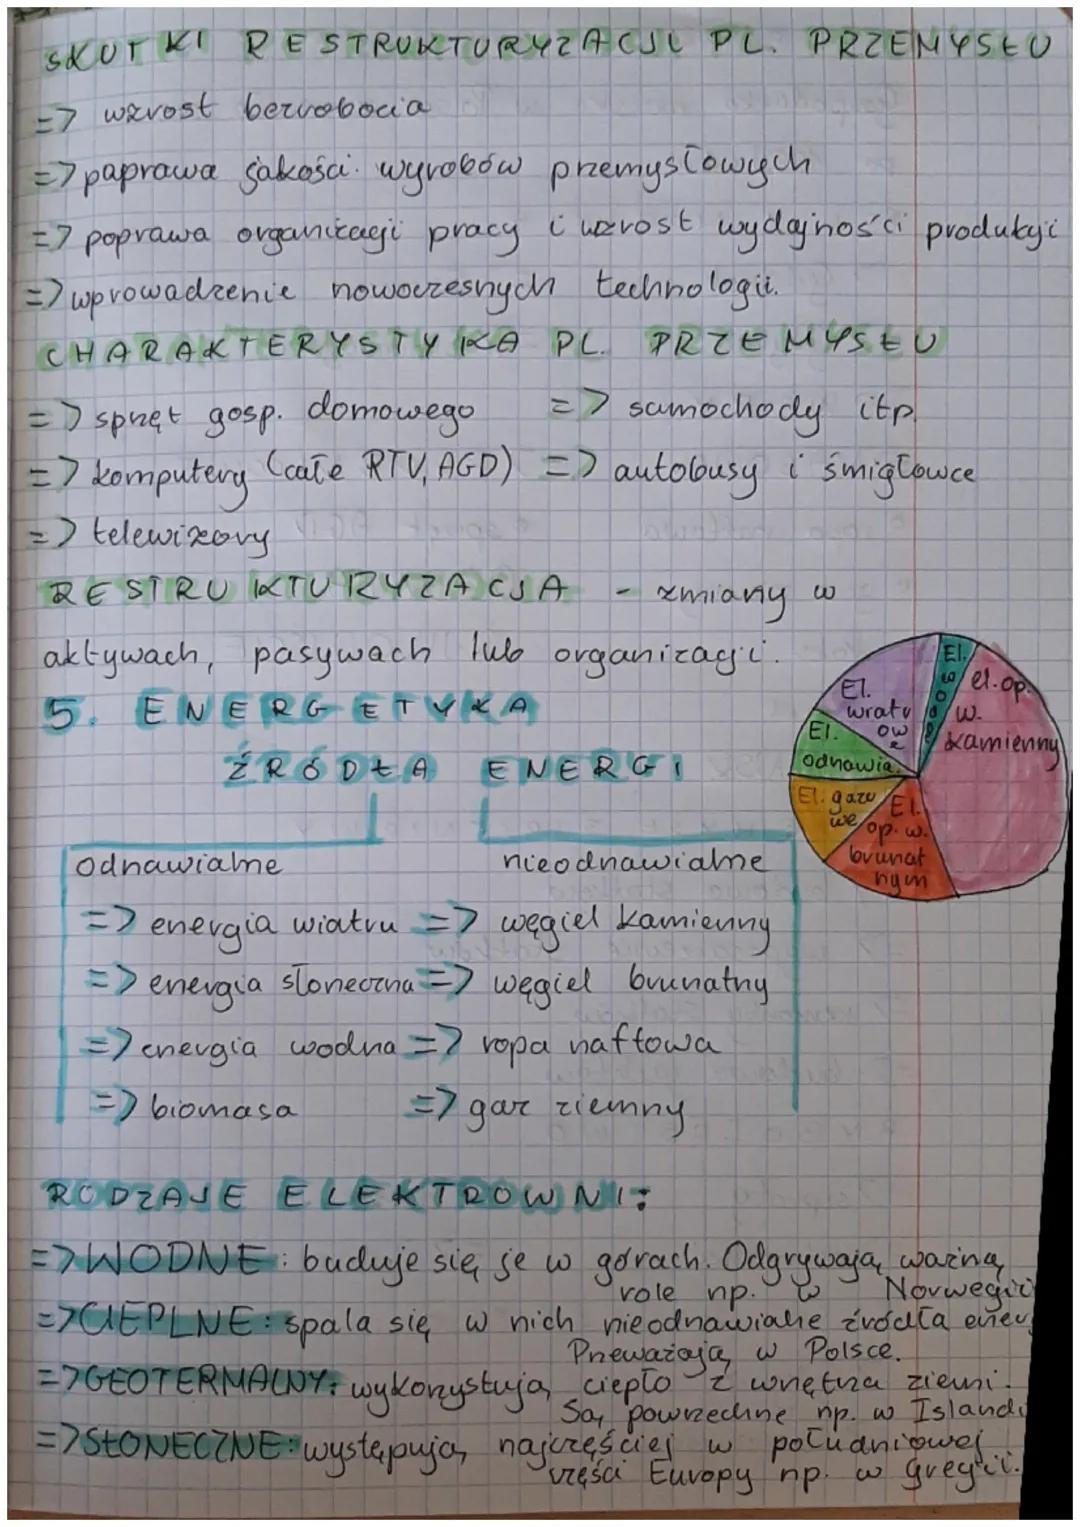 SKUTKI RESTRUKTURYZACJI PL. PRZEMYSŁU
=> wzrost bezrobocia
=> paprawa jakości wyrobów przemysłowych
=> poprawa organizacji pracy i wzrost wydajności produkcji
=> wprowadzenie nowoczesnych technologii.
CHARAKTERYSTYKA PL. PRZEMYSŁU
=> spręt gosp. domowego => samochody itp.
=> komputery (całe RTV, AGD) => autobusy i śmigłowce
=> telewizory
RESTRUKTURYZACJA - zmiany w
aktywach, pasywach lub organizacji.
5. ENERGETYKA
ŹRÓDŁA ENERGI
El. wiatrowe
El. wodne
el. op. w. kamienny
El. odnawia.
El. gazowe
El. op. w. brunatnym
odnawialne nieodnawialne
=> energia wiatru => węgiel kamienny
=> energia słoneczna => węgiel brunatny
=> energia wodna => ropa naftowa
=> biomasa => gaz ziemny
RODZAJE ELEKTROWNI:
=> WODNE: buduje się je w górach. Odgrywają ważną
role np. w Norwegii
=> CIEPLNE: spala się w nich nieodnawialne źródła ener
Przeważają w Polsce.
=> GEOTERMALNY: wykorzystują ciepło z wnętrza ziemi.
Są powrzechne np. w Islandi
=> SŁONECZNE: występują najczęściej w południowej
części Europy np. w grecji.